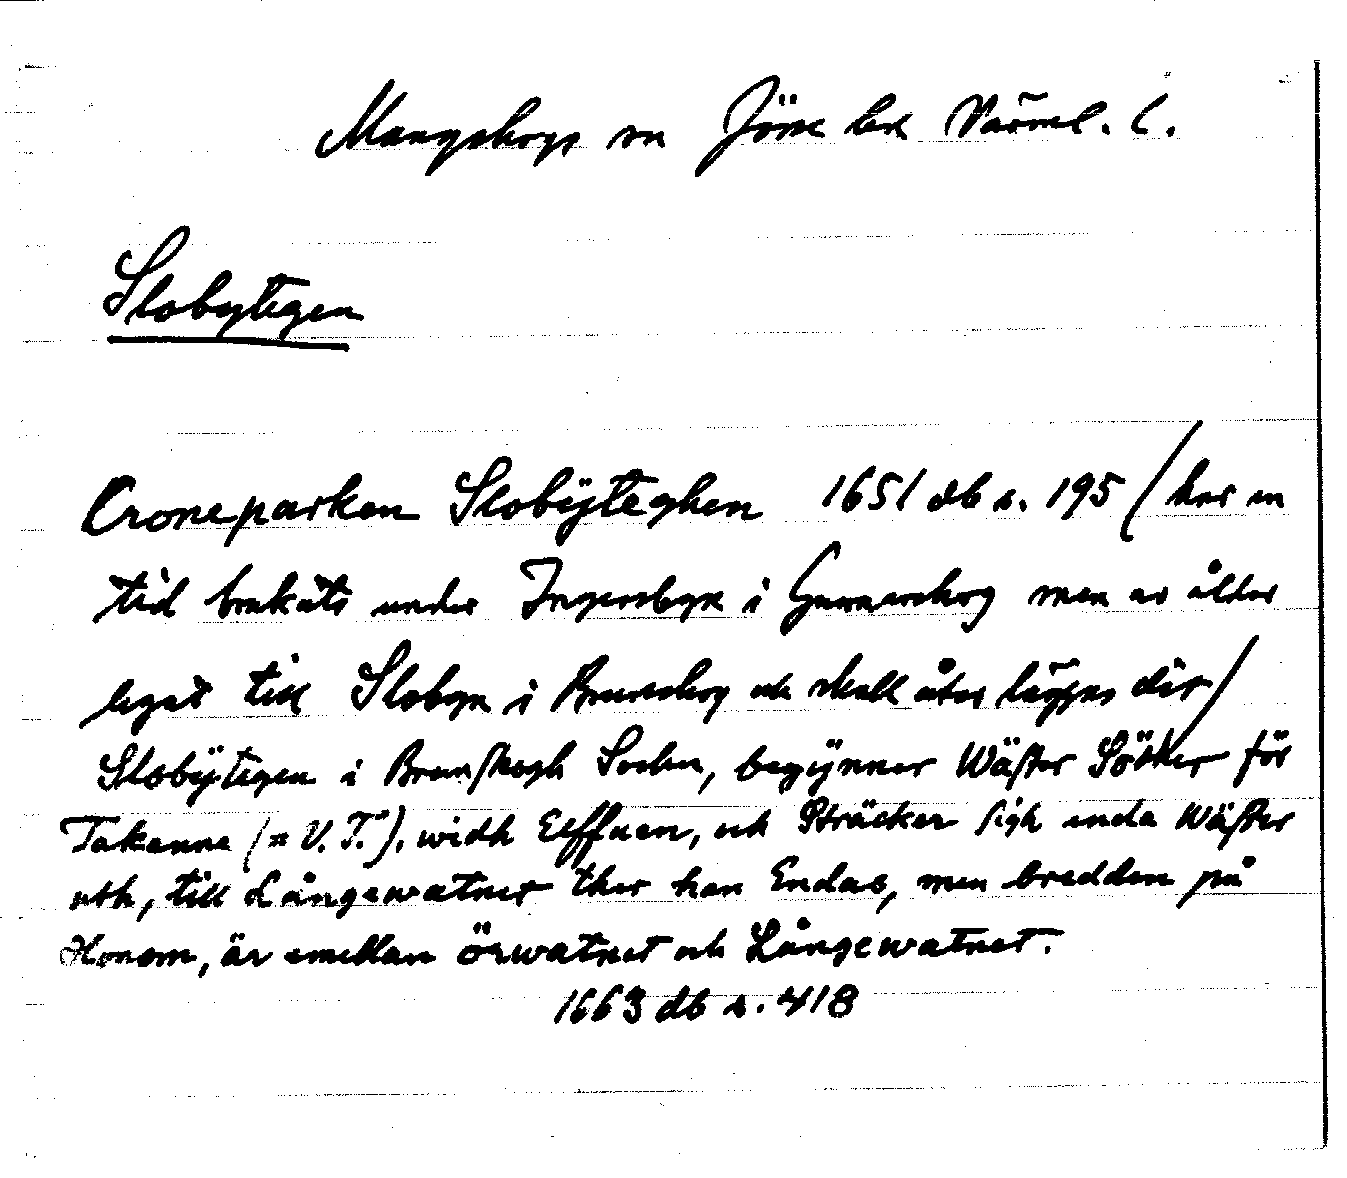 Mangskogs sn Jösse hd Värml. l.
Slobytegen
Croneparken Slobÿteghen 1651 db s. 195 / har en
tid brukats under Ingersbyn i Gunnarskog men av ålder
legat till Slobyn i Brunskog och skall åter läggas där /
Slobÿtegen i Brunskogh Sochn, begÿnner Wäster Sötter för
Takenne (= V. T.). widh Elffuen, och Sträcker sigh enda Wäster
uth, till Långewatnet ther han Endas, men bredden på
Honom, är emellan örwatnet och Långewatnet.
1663 db s. 418